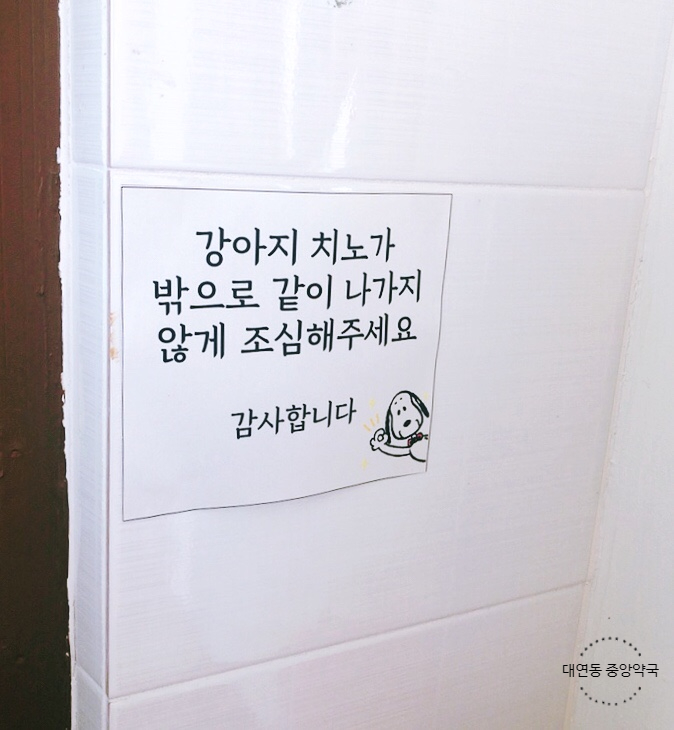 강아지 치노가
밖으로 같이 나가지
않게 조심해주세요
감사합니다
대연동 중앙약국